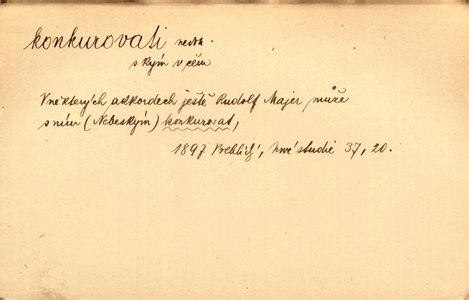 konkurovati nedok.
s kým v čem
V některých akkordech ještě Rudolf Majer může
s ním (Nebeským) konkurovat,
1897 Vrchlický, Nové studie 37, 20.